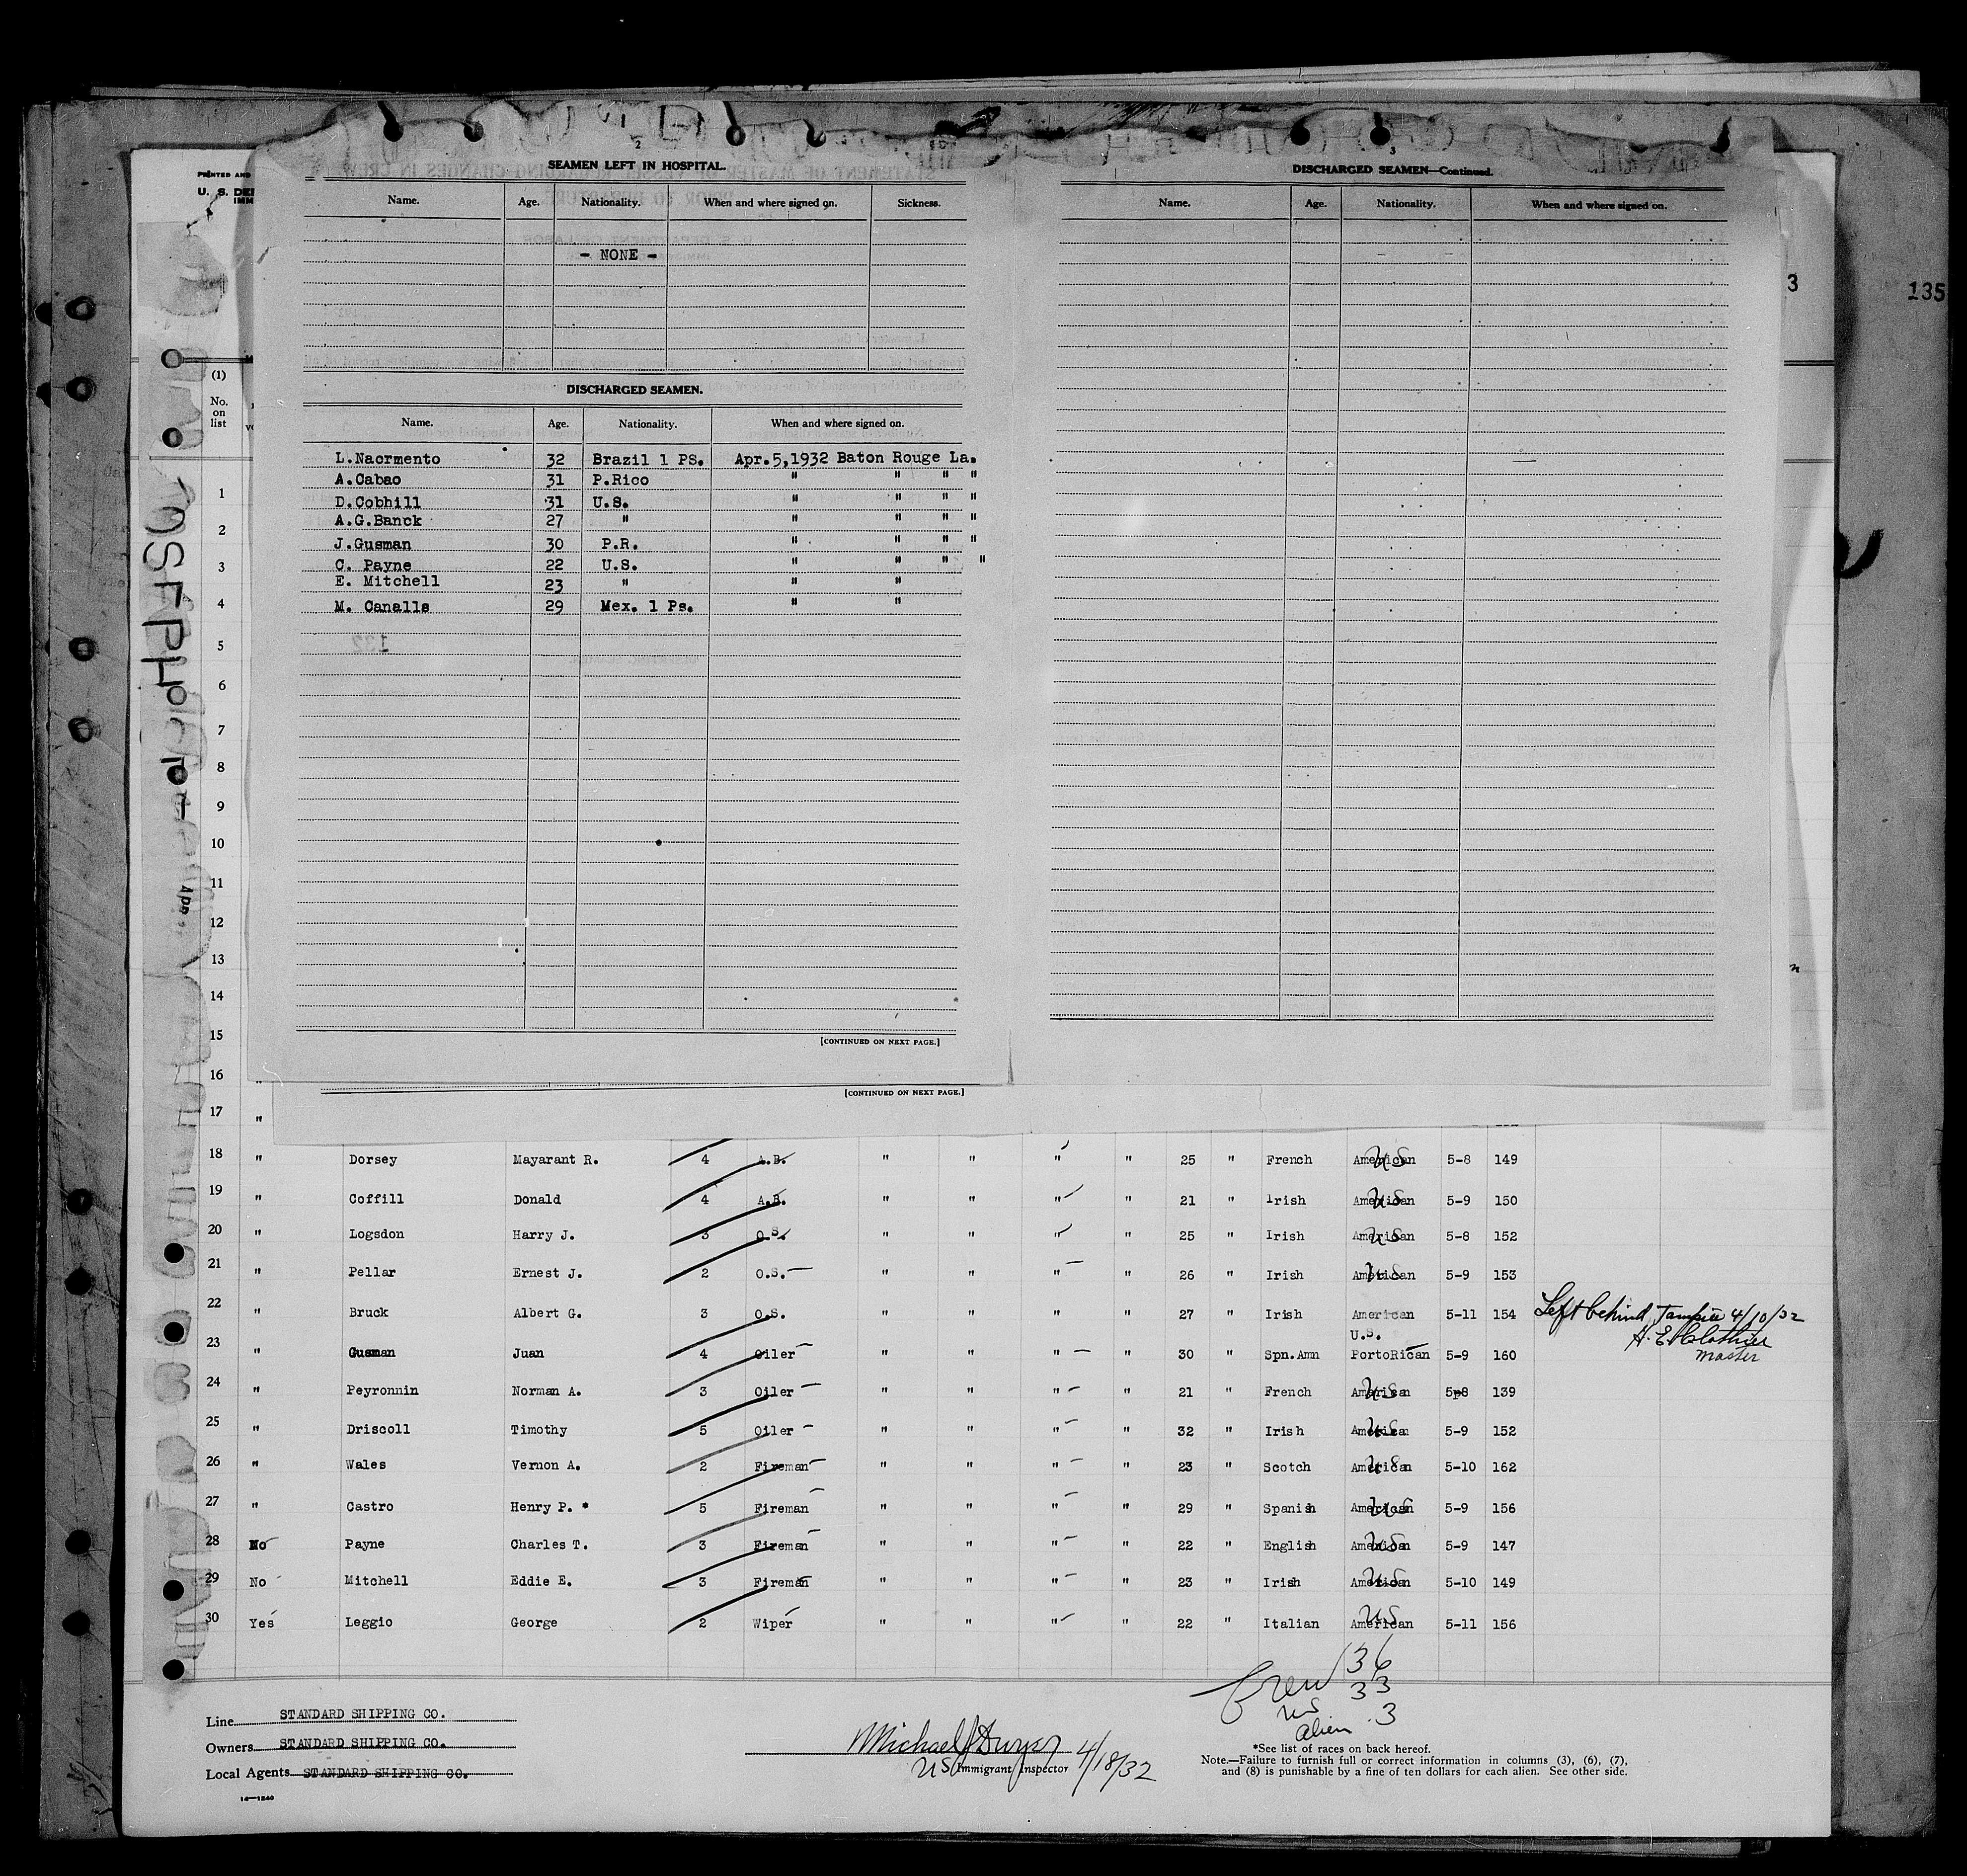 2
SEAMEN LEFT IN HOSPITAL.
Name. Age. Nationality. When and where signed on. Sickness.
- NONE -
DISCHARGED SEAMEN.
Name. Age. Nationality. When and where signed on.
L.Nacrmento 32 Brazil 1 PS. Apr.5,1932 Baton Rouge La.
A.Cabao 31 P.Rico " " " "
D.Cobhill 31 U.S. " " " "
A.G.Banck 27 " " " " "
J.Gusman 30 P.R. " " " "
C. Payne 22 U.S. " " " "
E. Mitchell 23 " " "
M. Canalls 29 Mex. 1 Ps. " "
[CONTINUED ON NEXT PAGE.]
3
DISCHARGED SEAMEN—Continued.
Name. Age. Nationality. When and where signed on.
3
135
PRINTED AND
U. S. DE
IMM
(1)
No.
on
list
1
2
3
4
5
6
7
8
9
10
11
12
13
14
15
16 "
17 "
[CONTINUED ON NEXT PAGE.]
18 " Dorsey Mayarant R. 4 A.B. " " " " 25 " French American US 5-8 149
19 " Coffill Donald 4 A.B. " " " " 21 " Irish American US 5-9 150
20 " Logsdon Harry J. 3 O.S. " " " " 25 " Irish American US 5-8 152
21 " Pellar Ernest J. 2 O.S. " " " " 26 " Irish American US 5-9 153
22 " Bruck Albert G. 3 O.S. " " " " 27 " Irish American 5-11 154 Left behind Tampico 4/10/32
H. E. Clothier
Master
U.S.
23 " Gusman Juan 4 Oiler " " " " 30 " Spn.Amn PortoRican 5-9 160
24 " Peyronnin Norman A. 3 Oiler " " " " 21 " French American US 5-8 139
25 " Driscoll Timothy 5 Oiler " " " " 32 " Irish American US 5-9 152
26 " Wales Vernon A. 2 Fireman " " " " 23 " Scotch American US 5-10 162
27 " Castro Henry P. * 5 Fireman " " " " 29 " Spanish American US 5-9 156
28 No Payne Charles T. 3 Fireman " " " " 22 " English American US 5-9 147
29 No Mitchell Eddie E. 3 Fireman " " " " 23 " Irish American US 5-10 149
30 Yes Leggio George 2 Wiper " " " " 22 " Italian American US 5-11 156
Crew 36
US 33
alien 3
Line STANDARD SHIPPING CO.
Owners STANDARD SHIPPING CO.
Local Agents STANDARD SHIPPING CO.
14—1240
Michael J Dwyer 4/18/32
US Immigrant Inspector
*See list of races on back hereof.
Note.—Failure to furnish full or correct information in columns (3), (6), (7),
and (8) is punishable by a fine of ten dollars for each alien. See other side.